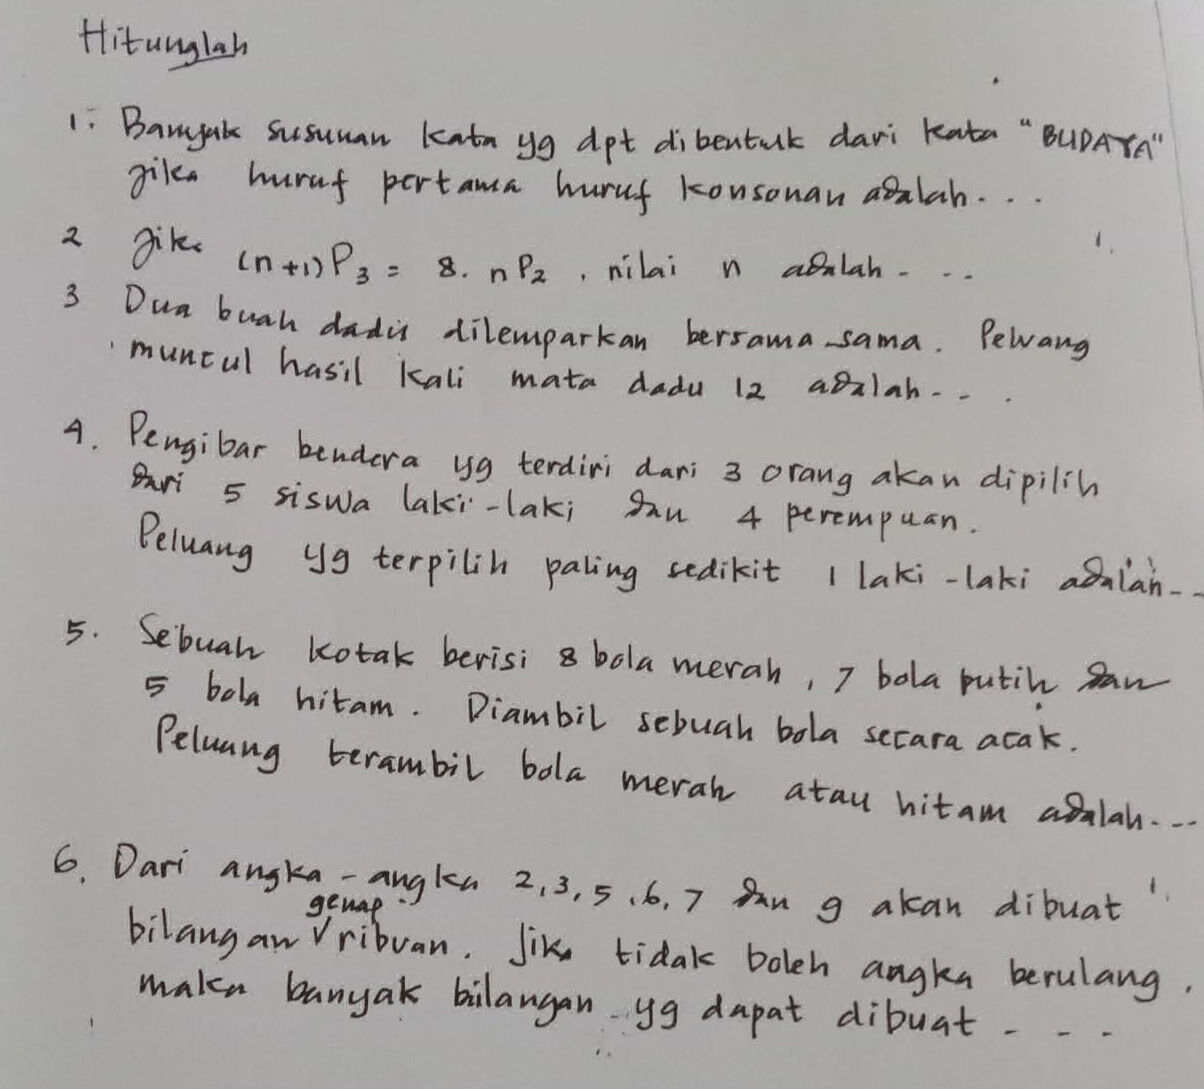 Hitunglah
1. Banyak susunan kata yg dpt dibentuk dari kata "BUDAYA"
jika huruf pertama huruf konsonan adalah...
2 Jika (n+1)P3 = 8. nP2 , nilai n adalah - - -
3 Dua buah dadu dilemparkan bersama-sama. Peluang
muncul hasil kali mata dadu 12 adalah - - .
4. Pengibar bendera yg terdiri dari 3 orang akan dipilih
dari 5 siswa laki-laki dan 4 perempuan.
Peluang yg terpilih paling sedikit 1 laki-laki adalah - -
5. Sebuah kotak berisi 8 bola merah, 7 bola putih dan
5 bola hitam. Diambil sebuah bola secara acak.
Peluang terambil bola merah atau hitam adalah - - -
6. Dari angka-angka 2, 3, 5, 6, 7 dan 9 akan dibuat
genap
bilangan √ ribuan. Jika tidak boleh angka berulang.
maka banyak bilangan yg dapat dibuat - - -